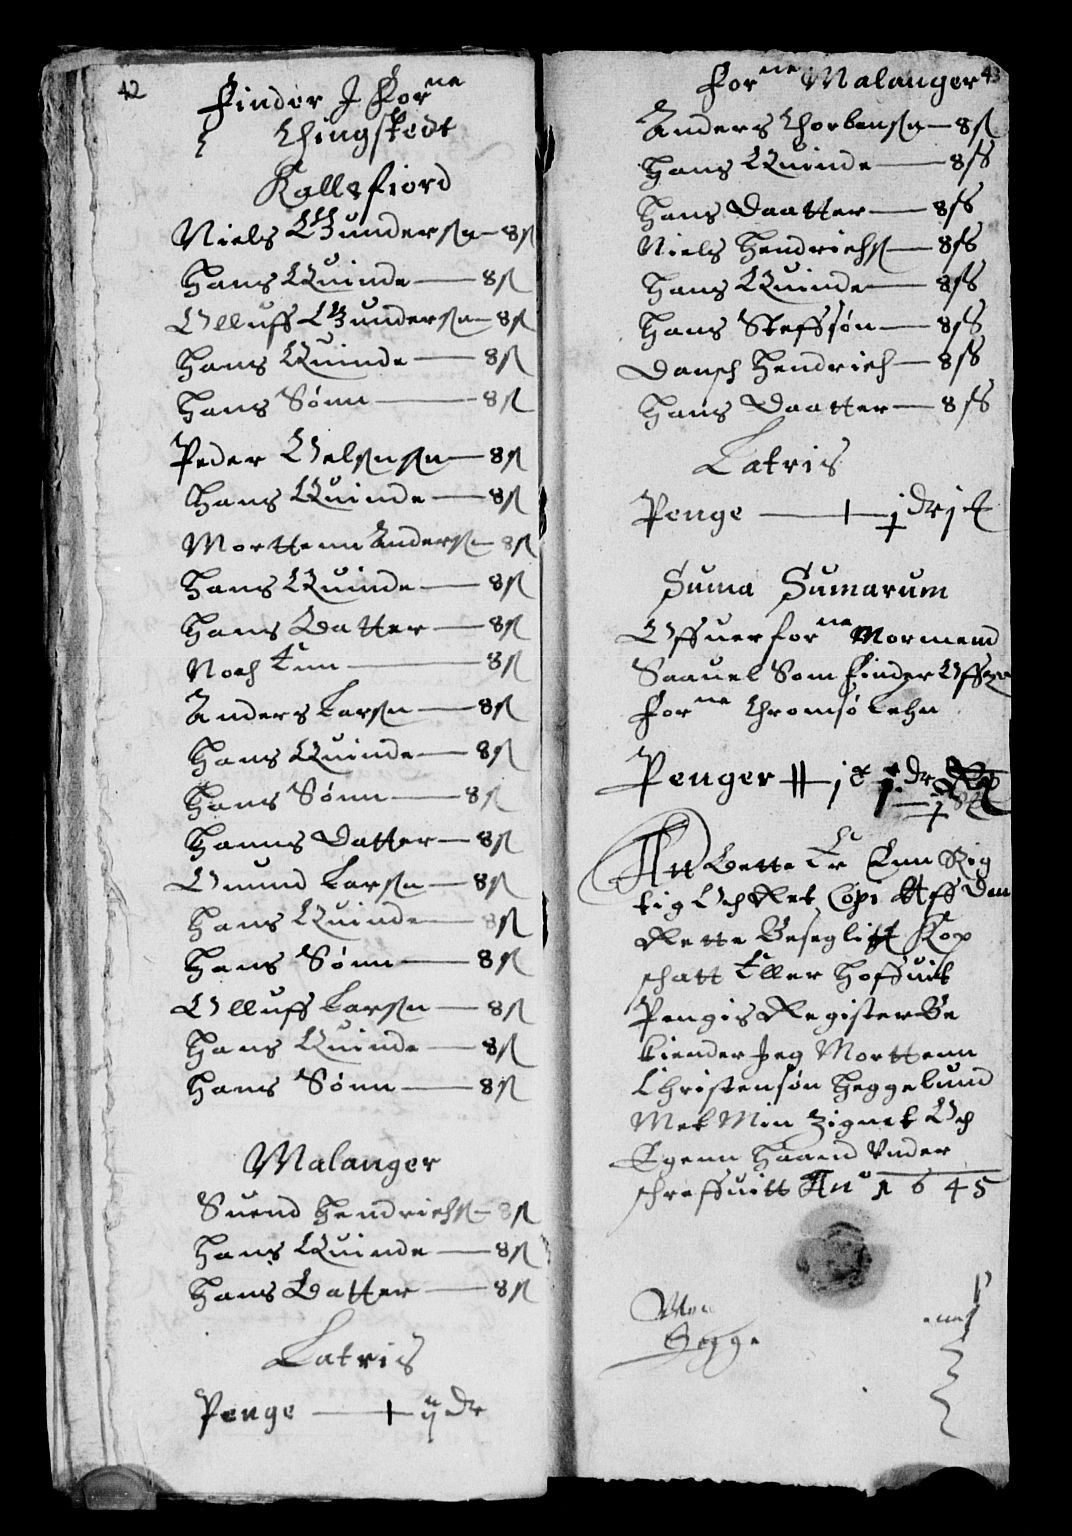 42
Finder J For ne
Thingstedt
Kallsfiord
Niels Gundersøn — 8 s
Hans Quinde — 8 s
Olluff Gundersøn — 8 s
Hans Quinde — 8 s
Hans Sønn — 8 s
Peder — 8 s
Hans Quinde — 8 s
Morttenn Anders — 8 s
Hans Quinde — 8 s
Hans Datter — 8 s
Noch Enn — 8 s
Anders Larsøn — 8 s
Hans Quinde — 8 s
Hans Sønn — 8 s
Hanns Datter — 8 s
Omund Larsøn — 8 s
Hans Quinde — 8 s
Hans Sønn — 8 s
Olluff Larsøn — 8 s
Hans Quinde — 8 s
Hans Sønn — 8 s
Malanger
Suend Hendrichs — 8 s
Hans Quinde — 8 s
Hans Datter — 8 s
Latris
Penge — ij dr
43
For ne Malanger
Anders Thorbensøn — 8 s
Hans Quinde — 8 ss
Hans Daatter — 8 ss
Niels Hendrichs — 8 ss
Hans Quinde — 8 ss
Hans Steffsøn — 8 ss
Dansch Hendrich — 8 ss
Hans Daatter — 8 ss
Latris
Penge — j dr j
Suma Sumarum
Offuer for ne Mormend
Saauel Som Finder Offuer
For ne Thromsø Lehn
Penger
At Dette Er Enn Rig
tig Och Ret Copi Aff Den
Rette Beseglitt Kop
schatt Eller Hoffuit
Pengis Register Be
kiender Jeg Morttenn
Christensøn Heggelund
Met Min Zignet Och
Egenn Haand Vnder
schreffuitt An o 1645